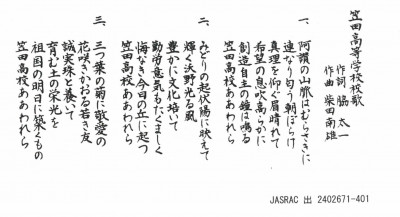 笠田高等学校校歌
作詞 脇 太一
作曲 柴田南雄
一、阿讃の山脈はむらさきに
連なり匂う朝ぼらけ
真理を仰ぐ眉晴れて
希望の息吹高らかに
創造自主の鐘は鳴る
笠田高校ああわれら
二、みどりの起伏陽に映えて
輝く沃野光る風
豊かに文化培いて
勤労意気もたくましく
悔なき今日の丘に起つ
笠田高校ああわれら
三、三つ葉の菊に敬愛の
花咲きかおる若き友
誠実珠と養いて
育む土の栄光を
祖国の明日に築くもの
笠田高校ああわれら
JASRAC 出 2402671-401